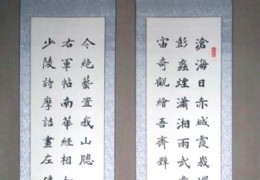 滄海日赤城霞峨嵋
彭蠡煙瀟湘雨武夷
宙奇觀繪吾齋壁
少陵詩摩詰畫左傳
右軍帖南華經相如
今絕藝置我山窗